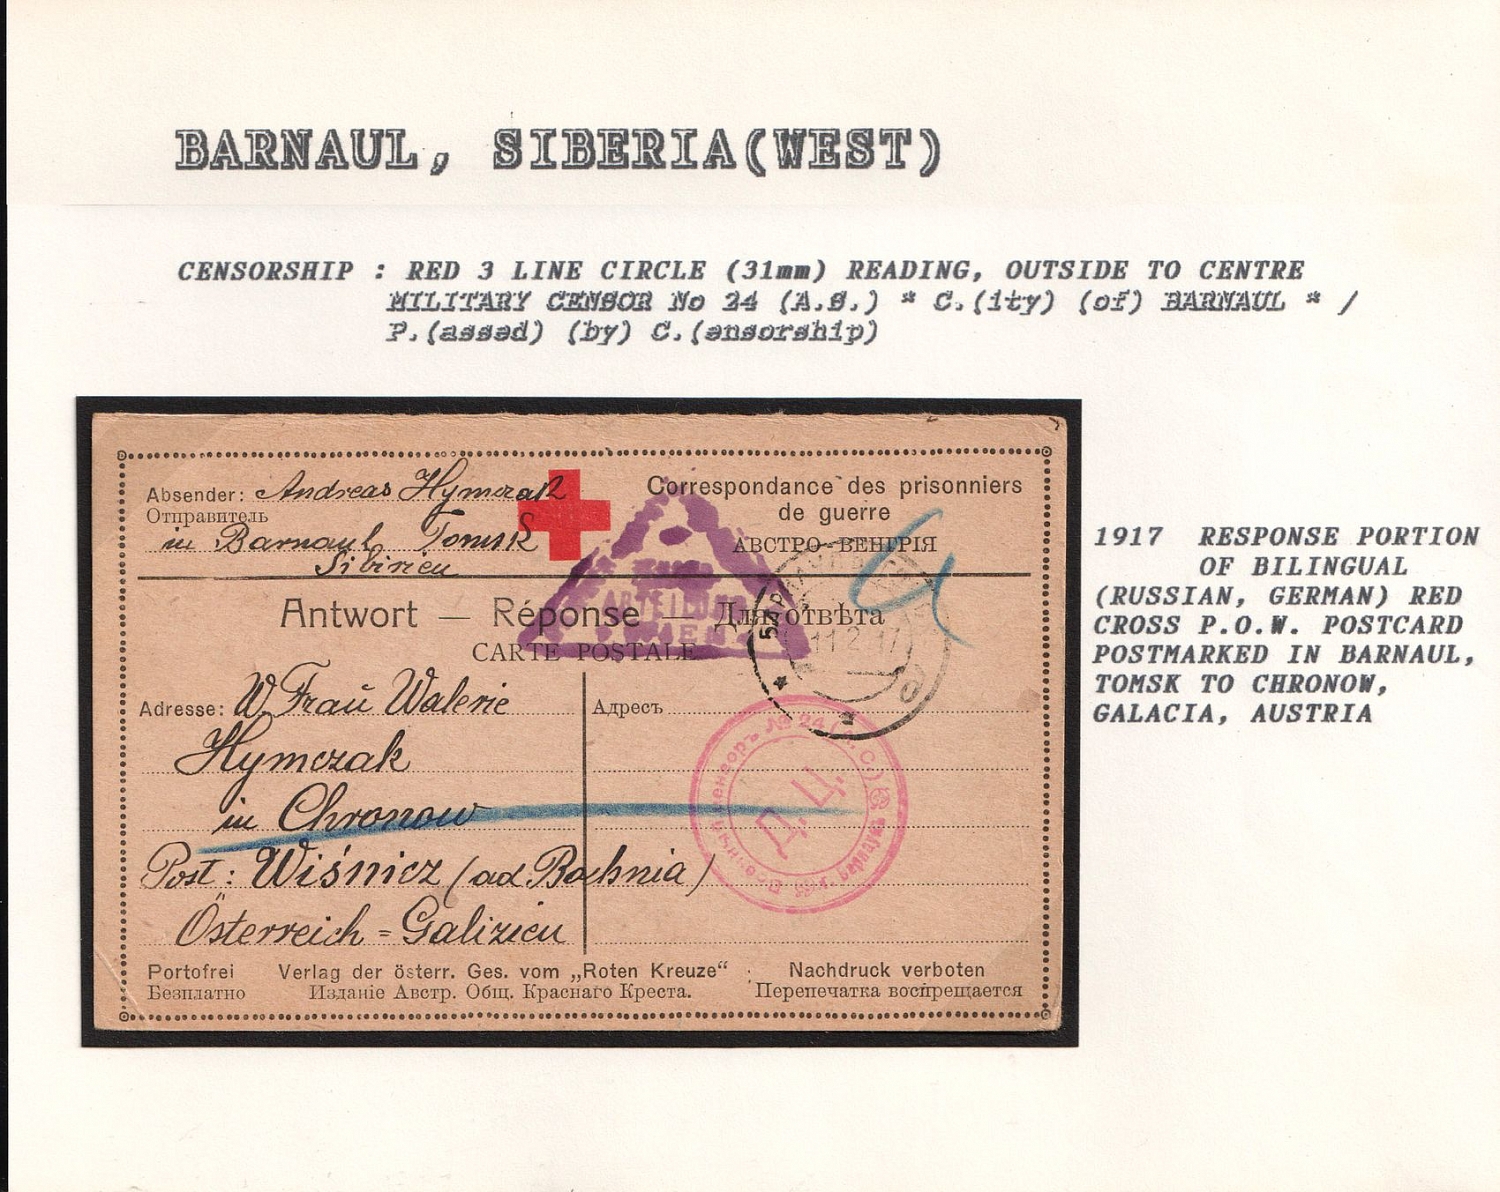 BARNAUL, SIBERIA(WEST)
CENSORSHIP : RED 3 LINE CIRCLE (31mm) READING, OUTSIDE TO CENTRE
MILITARY CENSOR No 24 (A.S.) * C.(ity) (of) BARNAUL * /
P.(assed) (by) C.(ensorship)
Absender: Andreas Hymczak
Отправитель
in Barnaul Tomsk
Sibirien
Correspondance des prisonniers
de guerre
АВСТРО-ВЕНГРІЯ
Antwort — Réponse — Для отвѣта
CARTE POSTALE
11 2 17
Adresse: W Frau Walerie
Адресъ
Hymczak
in Chronow
Post: Wiśnicz (ad Bochnia)
Österreich = Galizien
№ 24
Д. Ц.
Portofrei Verlag der österr. Ges. vom „Roten Kreuze“ Nachdruck verboten
Безплатно Изданіе Австр. Общ. Краснаго Креста. Перепечатка воспрещается
1917 RESPONSE PORTION
OF BILINGUAL
(RUSSIAN, GERMAN) RED
CROSS P.O.W. POSTCARD
POSTMARKED IN BARNAUL,
TOMSK TO CHRONOW,
GALACIA, AUSTRIA